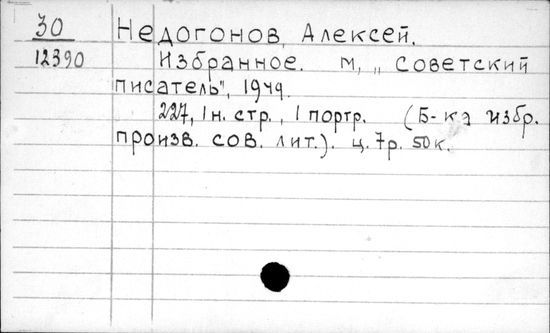 30 Недогонов, Алексей.
12390 Избранное. М, „Советский
писатель", 1949.
227, 1 н. стр., 1 портр. (Б-ка избр.
произв. сов. лит.). ц. 7р. 50к.